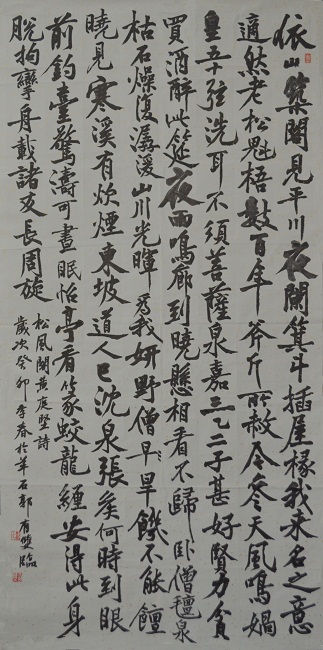 依山築閣見平川夜闌箕斗插屋椽我來名之意
適然老松魁梧數百年斧斤所赦今參天風鳴媧
皇五十弦洗耳不須菩薩泉嘉三二子甚好賢力貧
買酒醉此筵夜雨鳴廊到曉懸相看不歸臥僧氈泉
枯石燥復潺湲山川光暉為我妍野僧早旱饑不能饘
曉見寒溪有炊煙東坡道人已沈泉張侯何時到眼
前釣臺驚濤可晝眠怡亭看篆蛟龍纏安得此身
脫拘攣舟載諸友長周旋
松風閣黃庭堅詩
歲次癸卯季春於華石郭有雙臨